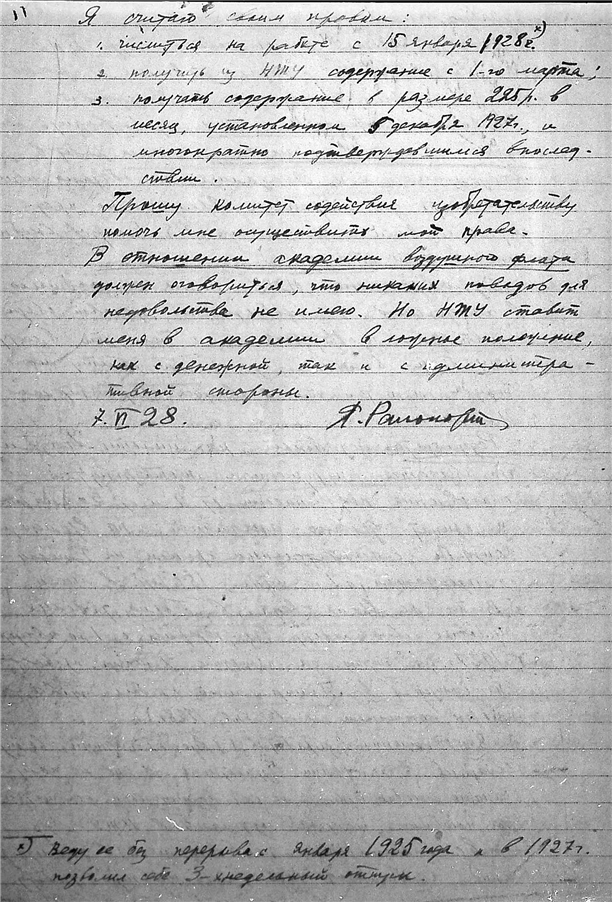 11
Я считаю своим правом:
1. числиться на работе с 15 января 1928 г. х)
2. получить у НТУ содержание с 1-го марта;
3. получать содержание в размере 225 р. в
месяц, установленном 5 декабря 1927 г., и
многократно подтвердившимся впослед-
ствии.
Прошу комитет содействия изобретательству
помочь мне осуществить мои права.
В отношении академии воздушного флота
должен оговориться, что никаких поводов для
недовольства не имею. Но НТУ ставит
меня в академии в ложное положение,
как с денежной, так и с администра-
тивной стороны.
7.VI 28.
х) Веду ее без перерыва с января 1925 года и в 1927 г.
позволил себе 3-хнедельный отпуск.